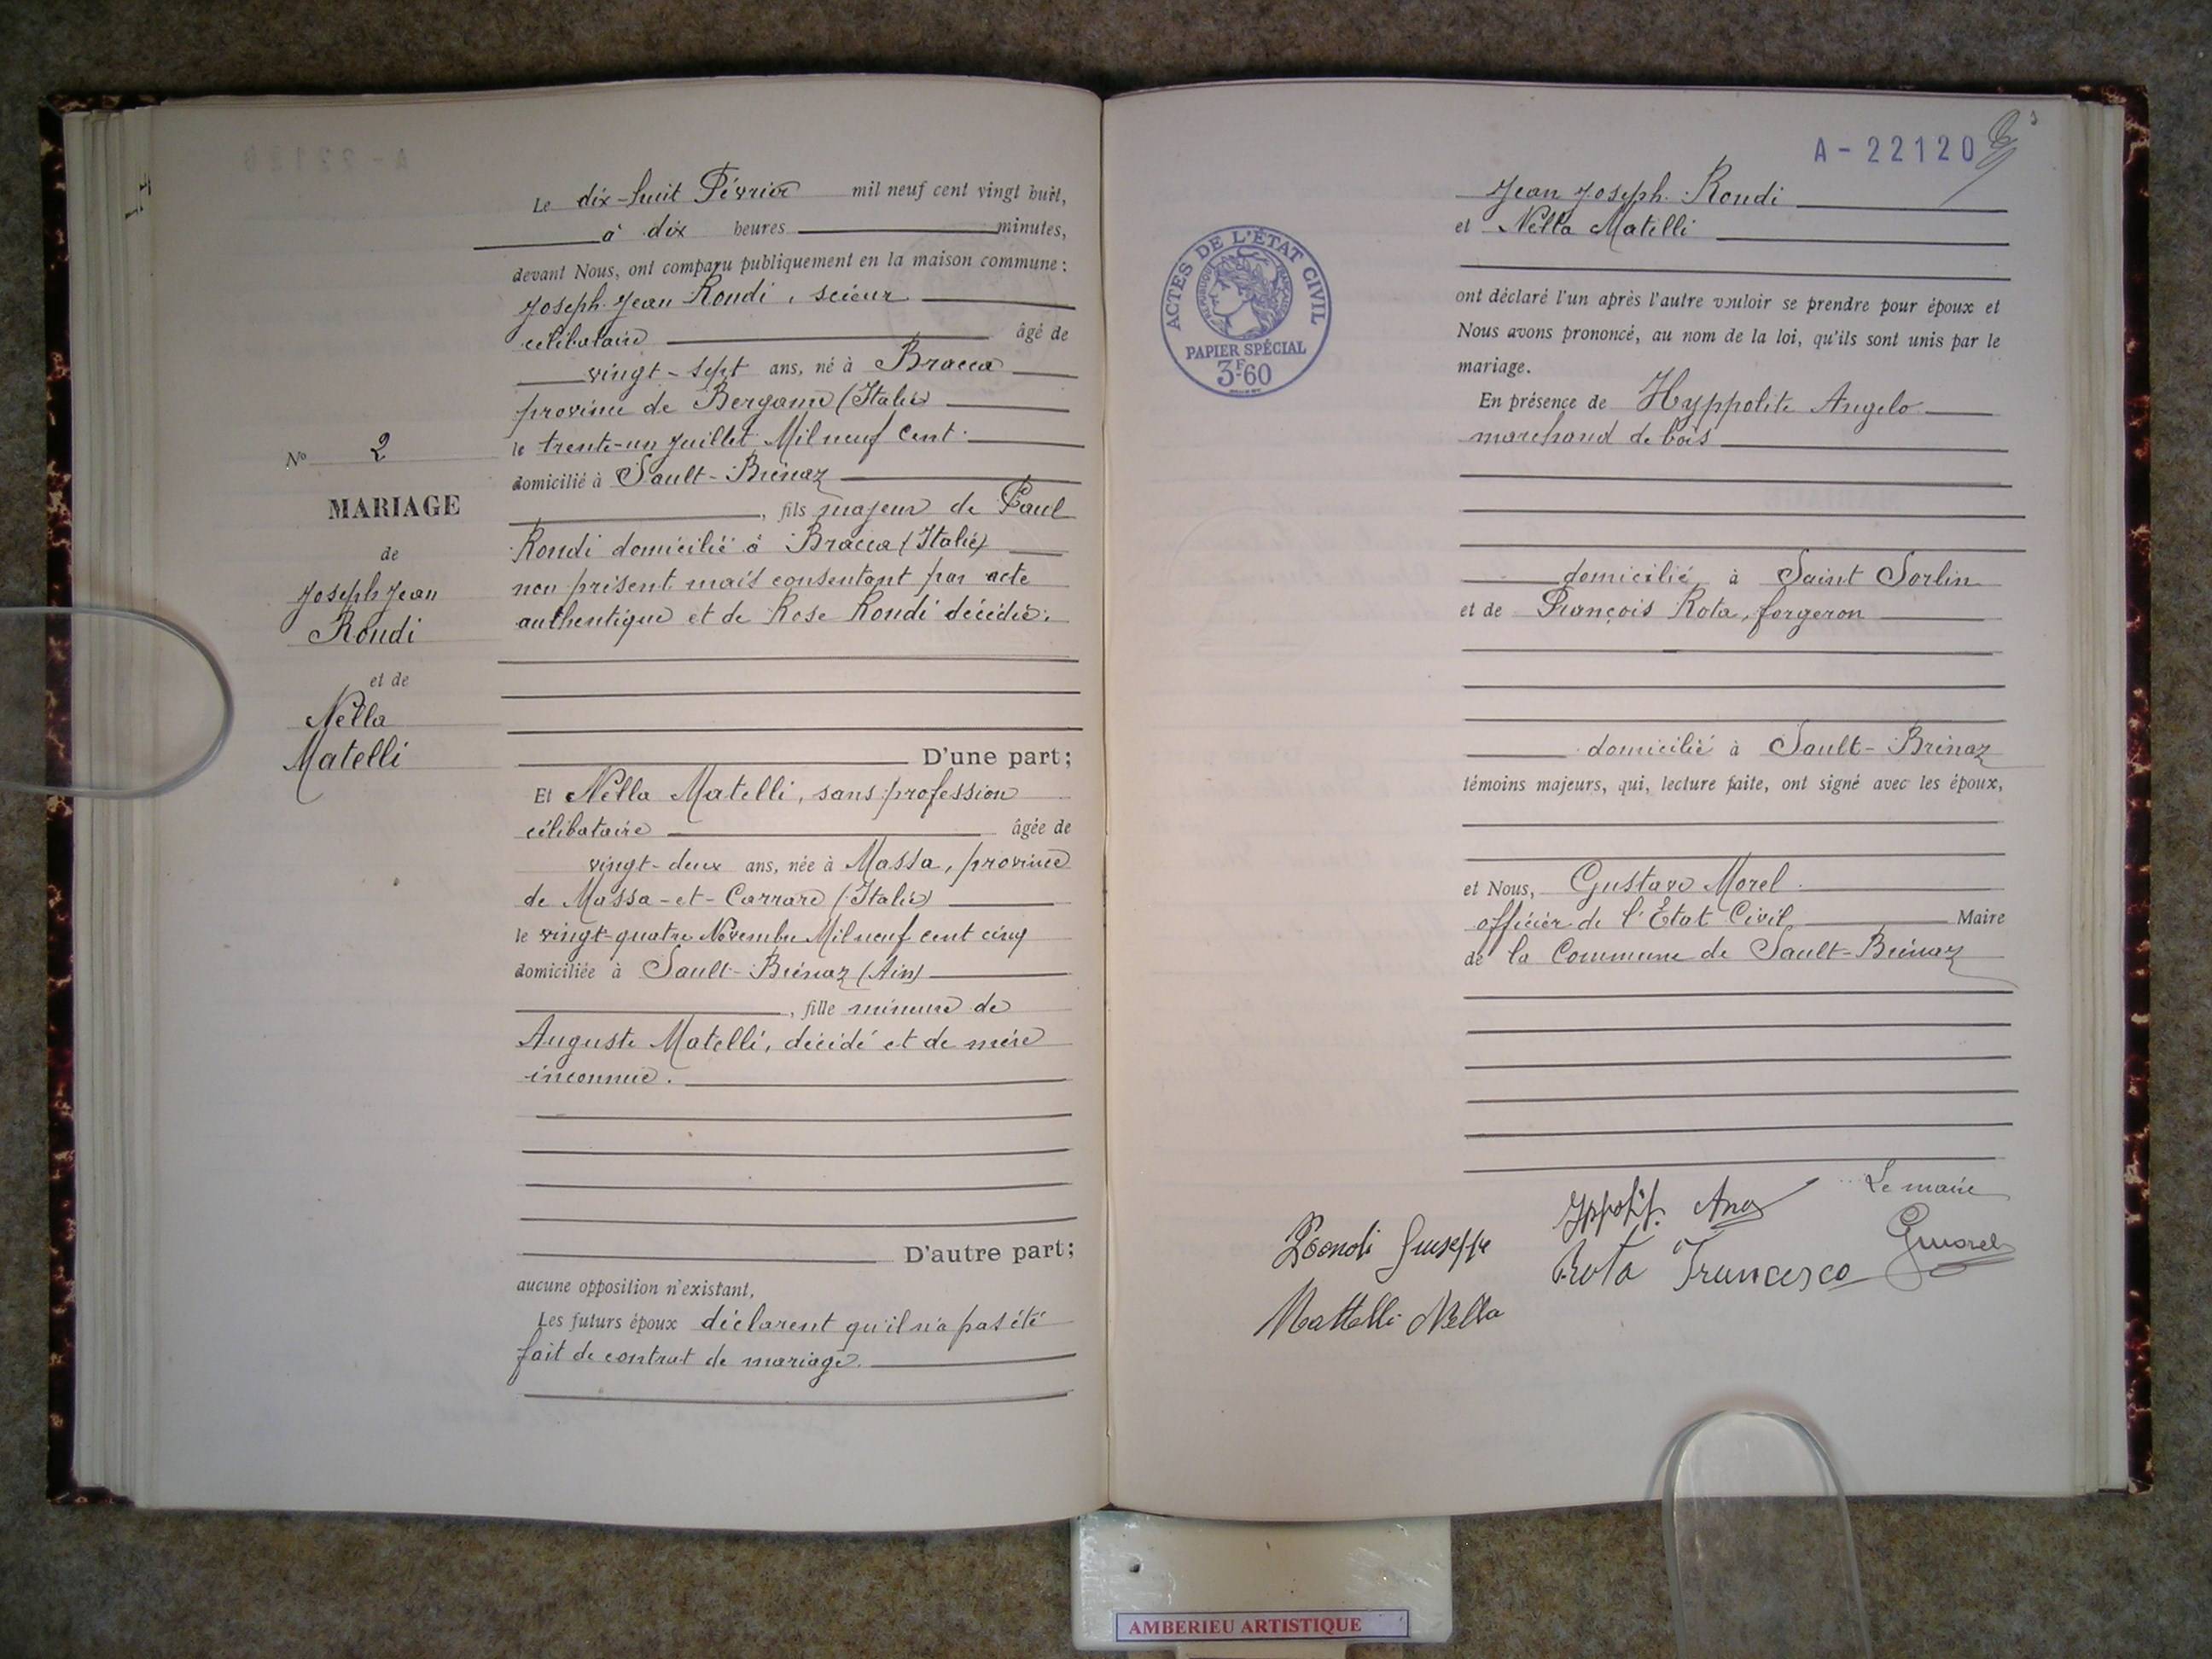 Le dix-huit Février mil neuf cent vingt huit,
à dix heures minutes,
devant Nous, ont comparu publiquement en la maison commune :
Joseph Jean Rondi, scieur
célibataire âgé de
vingt-sept ans, né à Bracca
province de Bergame (Italie)
le trente-un Juillet Mil neuf cent
domicilié à Sault-Brénaz
, fils majeur de Paul
Rondi domicilié à Bracca (Italie)
non présent mais consentant par acte
authentique et de Rose Rondi décédée.
No 2
MARIAGE
de
Joseph Jean
Rondi
et de
Nella
Matelli
D'une part;
Et Nella Matelli, sans profession
célibataire âgée de
vingt-deux ans, née à Massa, province
de Massa-et-Carrare (Italie)
le vingt-quatre Novembre Mil neuf cent cinq
domiciliée à Sault-Brénaz (Ain)
, fille mineure de
Auguste Matelli, décédé et de mère
inconnue.
D'autre part;
aucune opposition n'existant,
Les futurs époux déclarent qu'il n'a pas été
fait de contrat de mariage.
A-22120
Jean Joseph Rondi
et Nella Matelli
ACTES DE L'ÉTAT CIVIL
PAPIER SPÉCIAL
3F60
ont déclaré l'un après l'autre vouloir se prendre pour époux et
Nous avons prononcé, au nom de la loi, qu'ils sont unis par le
mariage.
En présence de Hyppolite Angelo
marchand de bois
domicilié à Saint Sorlin
et de François Rota, forgeron
domicilié à Sault-Brénaz
témoins majeurs, qui, lecture faite, ont signé avec les époux,
et Nous, Gustave Morel
officier de l'Etat Civil Maire
de la Commune de Sault-Brénaz
Le maire
Rondi Giuseppe
Rota Francesco
GMorel
Mattelli Nella
AMBERIEU ARTISTIQUE